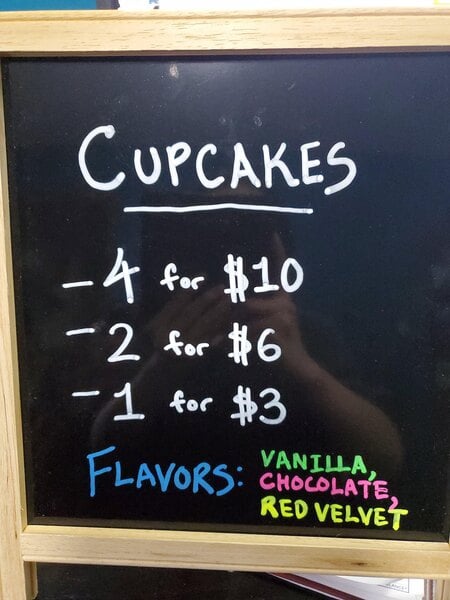 CUPCAKES
- 4 for $10
- 2 for $6
- 1 for $3
FLAVORS: VANILLA,
CHOCOLATE,
RED VELVET